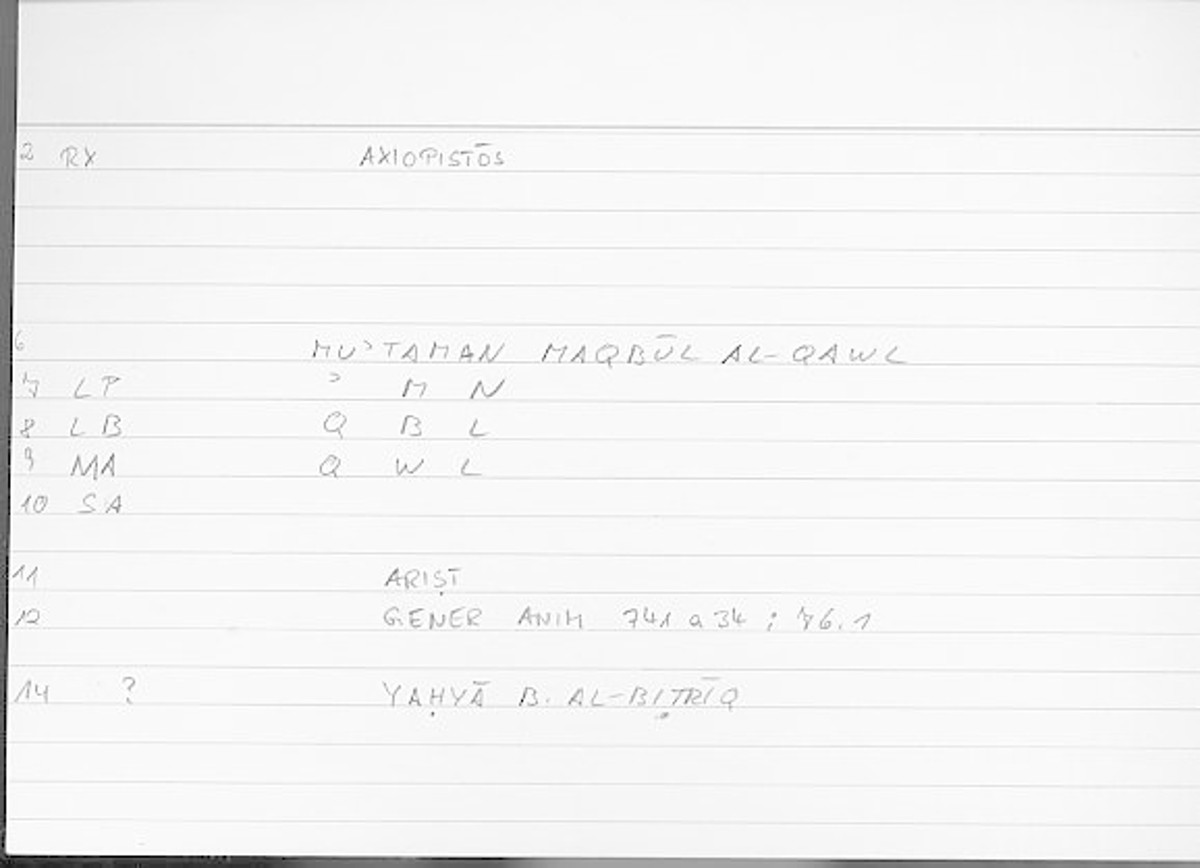 2 RX AXIOPISTŌS
6 MUʾTAMAN MAQBŪL AL-QAWL
7 LP ʾ M N
8 LB Q B L
9 MA Q W L
10 SA
11 ARISṬ
12 GENER ANIM 741 a 34 ; 76.1
14 ? YAḤYĀ B. AL-BIṬRĪQ